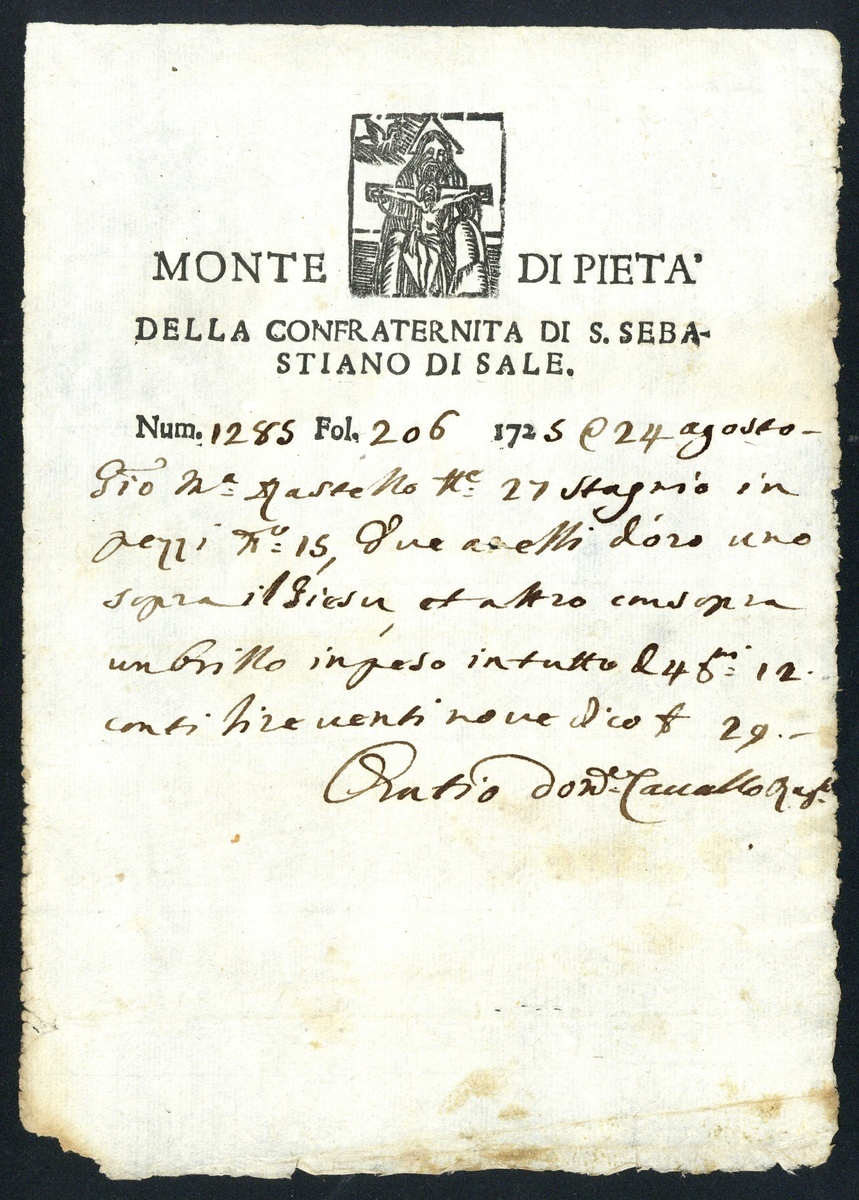 MONTE DI PIETA'
DELLA CONFRATERNITA DI S. SEBA-
STIANO DI SALE.
Num. 1285 Fol. 206 1725 @ 24 agosto -
Gio Ma: Rastello 27 stagnio in
pezzi No: 15, due anelli d'oro uno
sopra il Giesu, et altro con sopra
un brillo in peso in tutto d 4 12.
conti lire venti nove dico £ 29.-
Oratio Cavallo